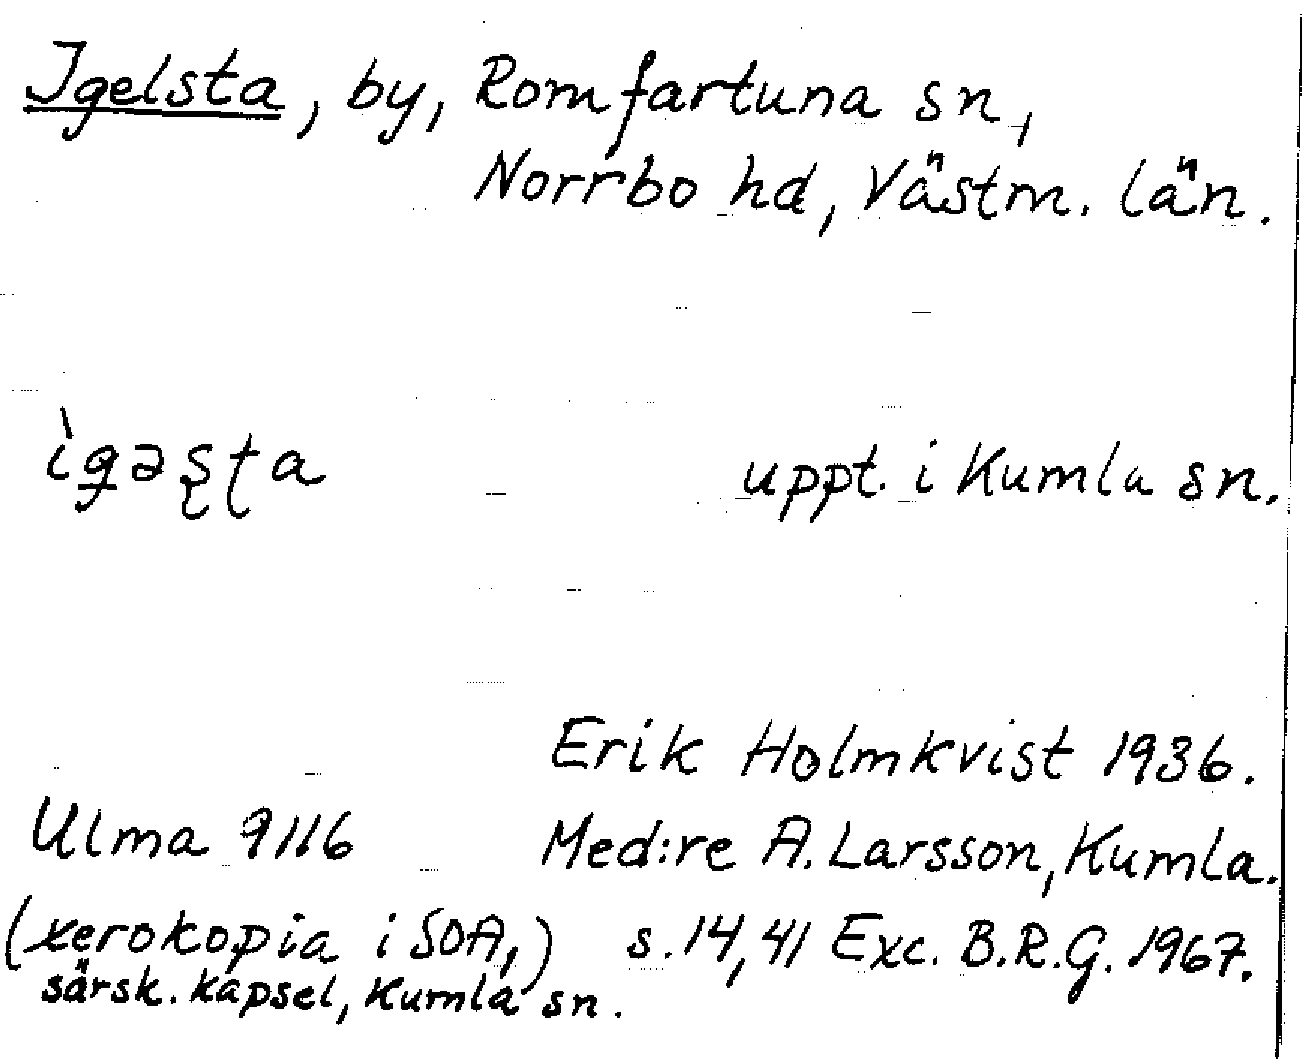 Igelsta, by, Romfartuna sn,
Norrbo hd, Västm. län.
ìgəʂʈa uppt. i Kumla sn.
Erik Holmkvist 1936.
Ulma 9116 Med:re A. Larsson, Kumla.
(xerokopia i SOA,) s. 14, 41 Exc. B.R.G. 1967.
särsk. kapsel, Kumla sn.